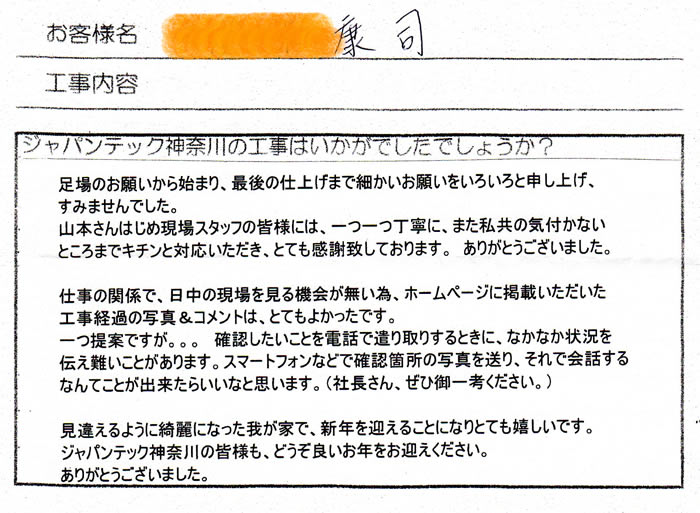 お客様名 康司
工事内容
ジャパンテック神奈川の工事はいかがでしたでしょうか？
足場のお願いから始まり、最後の仕上げまで細かいお願いをいろいろと申し上げ、
すみませんでした。
山本さんはじめ現場スタッフの皆様には、一つ一つ丁寧に、また私共の気付かない
ところまでキチンと対応いただき、とても感謝致しております。 ありがとうございました。
仕事の関係で、日中の現場を見る機会が無い為、ホームページに掲載いただいた
工事経過の写真＆コメントは、とてもよかったです。
一つ提案ですが。。。 確認したいことを電話で遣り取りするときに、なかなか状況を
伝え難いことがあります。スマートフォンなどで確認箇所の写真を送り、それで会話する
なんてことが出来たらいいなと思います。（社長さん、ぜひ御一考ください。）
見違えるように綺麗になった我が家で、新年を迎えることになりとても嬉しいです。
ジャパンテック神奈川の皆様も、どうぞ良いお年をお迎えください。
ありがとうございました。